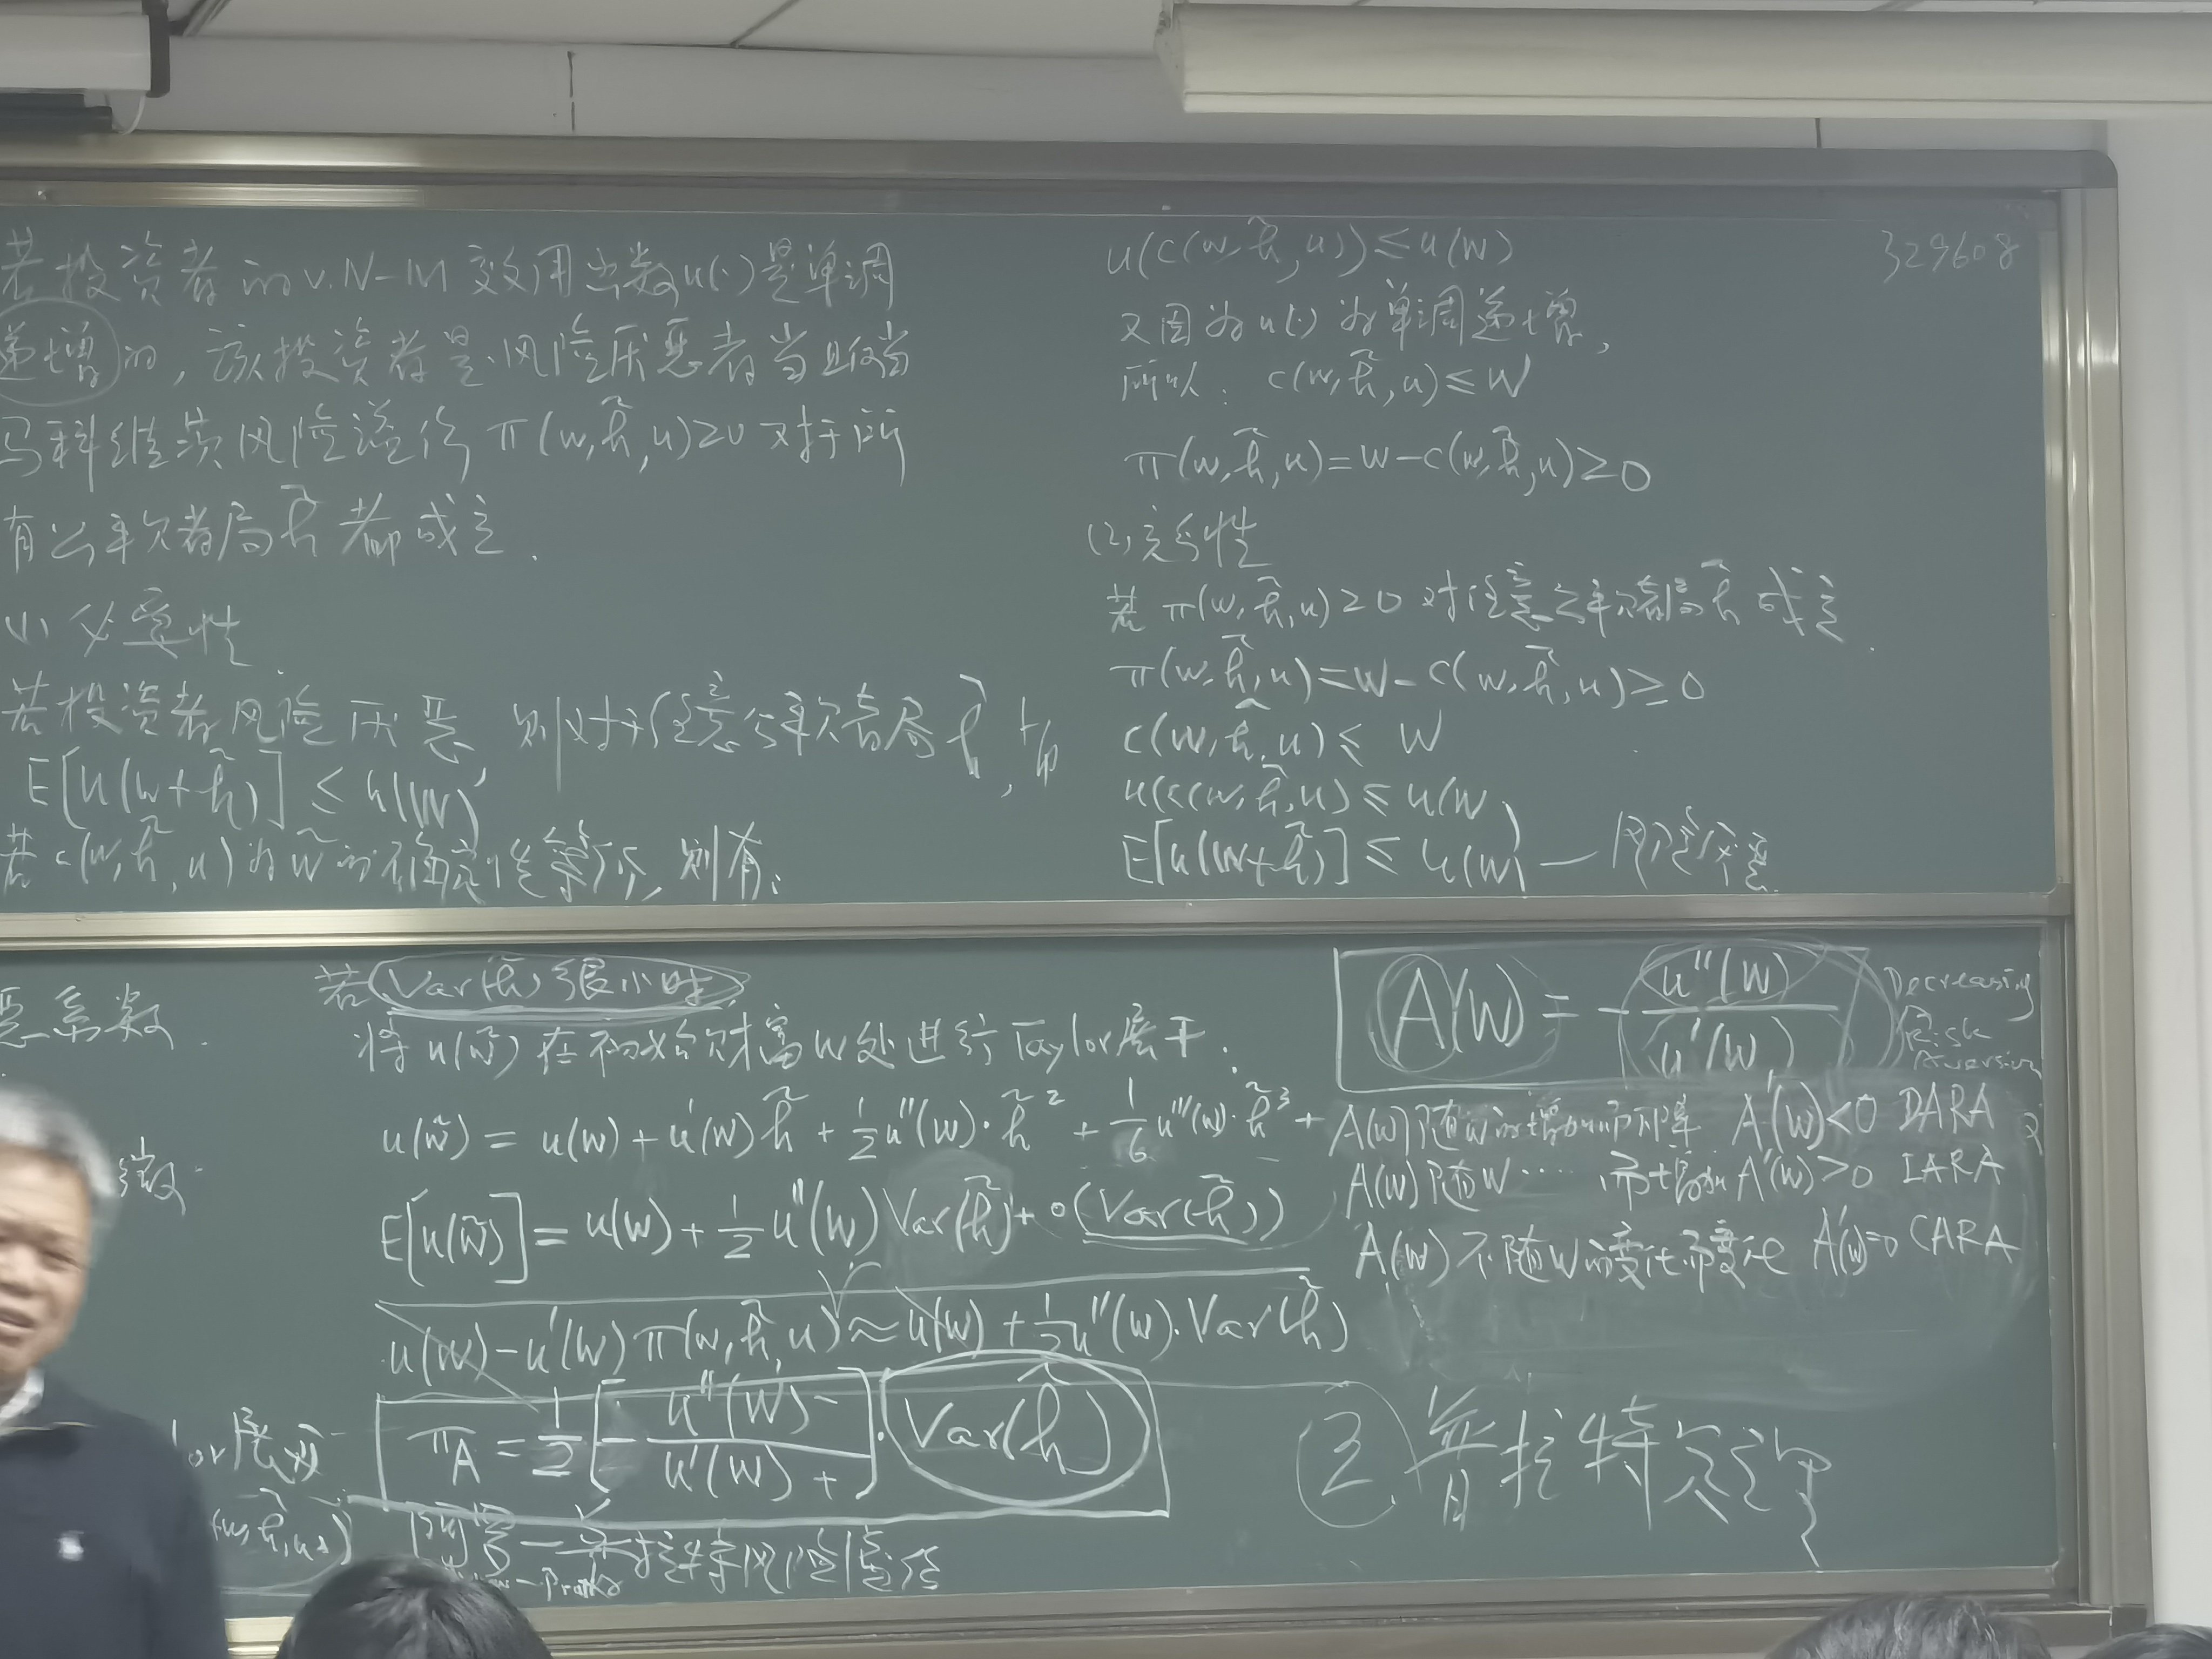 若投资者的v.N-M效用函数u(·)是单调
递增的，该投资者是风险厌恶者当且仅当
马科维茨风险溢价 π(w,h̃,u)≥0 对于所
有公平赌局h̃都成立.
(1) 必要性
若投资者风险厌恶，则对于任意公平赌局h̃，有
E[u(w+h̃)] ≤ u(w)
若c(w,h̃,u)为w̃的确定性等价，则有：
u(c(w,h̃,u))≤u(w)
又因为u(·)为单调递增，
所以：c(w,h̃,u)≤w
π(w,h̃,u)=w-c(w,h̃,u)≥0
(2) 充分性
若 π(w,h̃,u)≥0 对任意公平赌局h̃成立.
π(w,h̃,u)=w-c(w,h̃,u)≥0
c(w,h̃,u)≤ w
u(c(w,h̃,u)≤u(w)
E[u(w+h̃)]≤ u(w) — 风险厌恶.
329608
恶系数.
数.
lor展开
(w,h̃,u)
若Var(h̃)很小时,
将u(w̃)在初始财富w处进行Taylor展开.
u(w̃) = u(w)+u'(w)h̃+½u''(w)·h̃²+⅙u'''(w)·h̃³+
E[u(w̃)]=u(w)+½u''(w)Var(h̃)+o(Var(h̃))
u(w)-u'(w)π(w,h̃,u)≈u(w)+½u''(w).Var(h̃)
π_A=½[-u''(w)-/u'(w)+]·Var(h̃)
阿罗—普拉特风险溢价
-Pratt
A(w)=-u''(w)/u'(w)
Decreasing
Risk
Aversion
A(w)随w的增加而下降 A'(w)<0 DARA
A(w)随w……而增加 A'(w)>0 IARA
A(w)不随w的变化而变化 A'(w)=0 CARA
② 普拉特定理